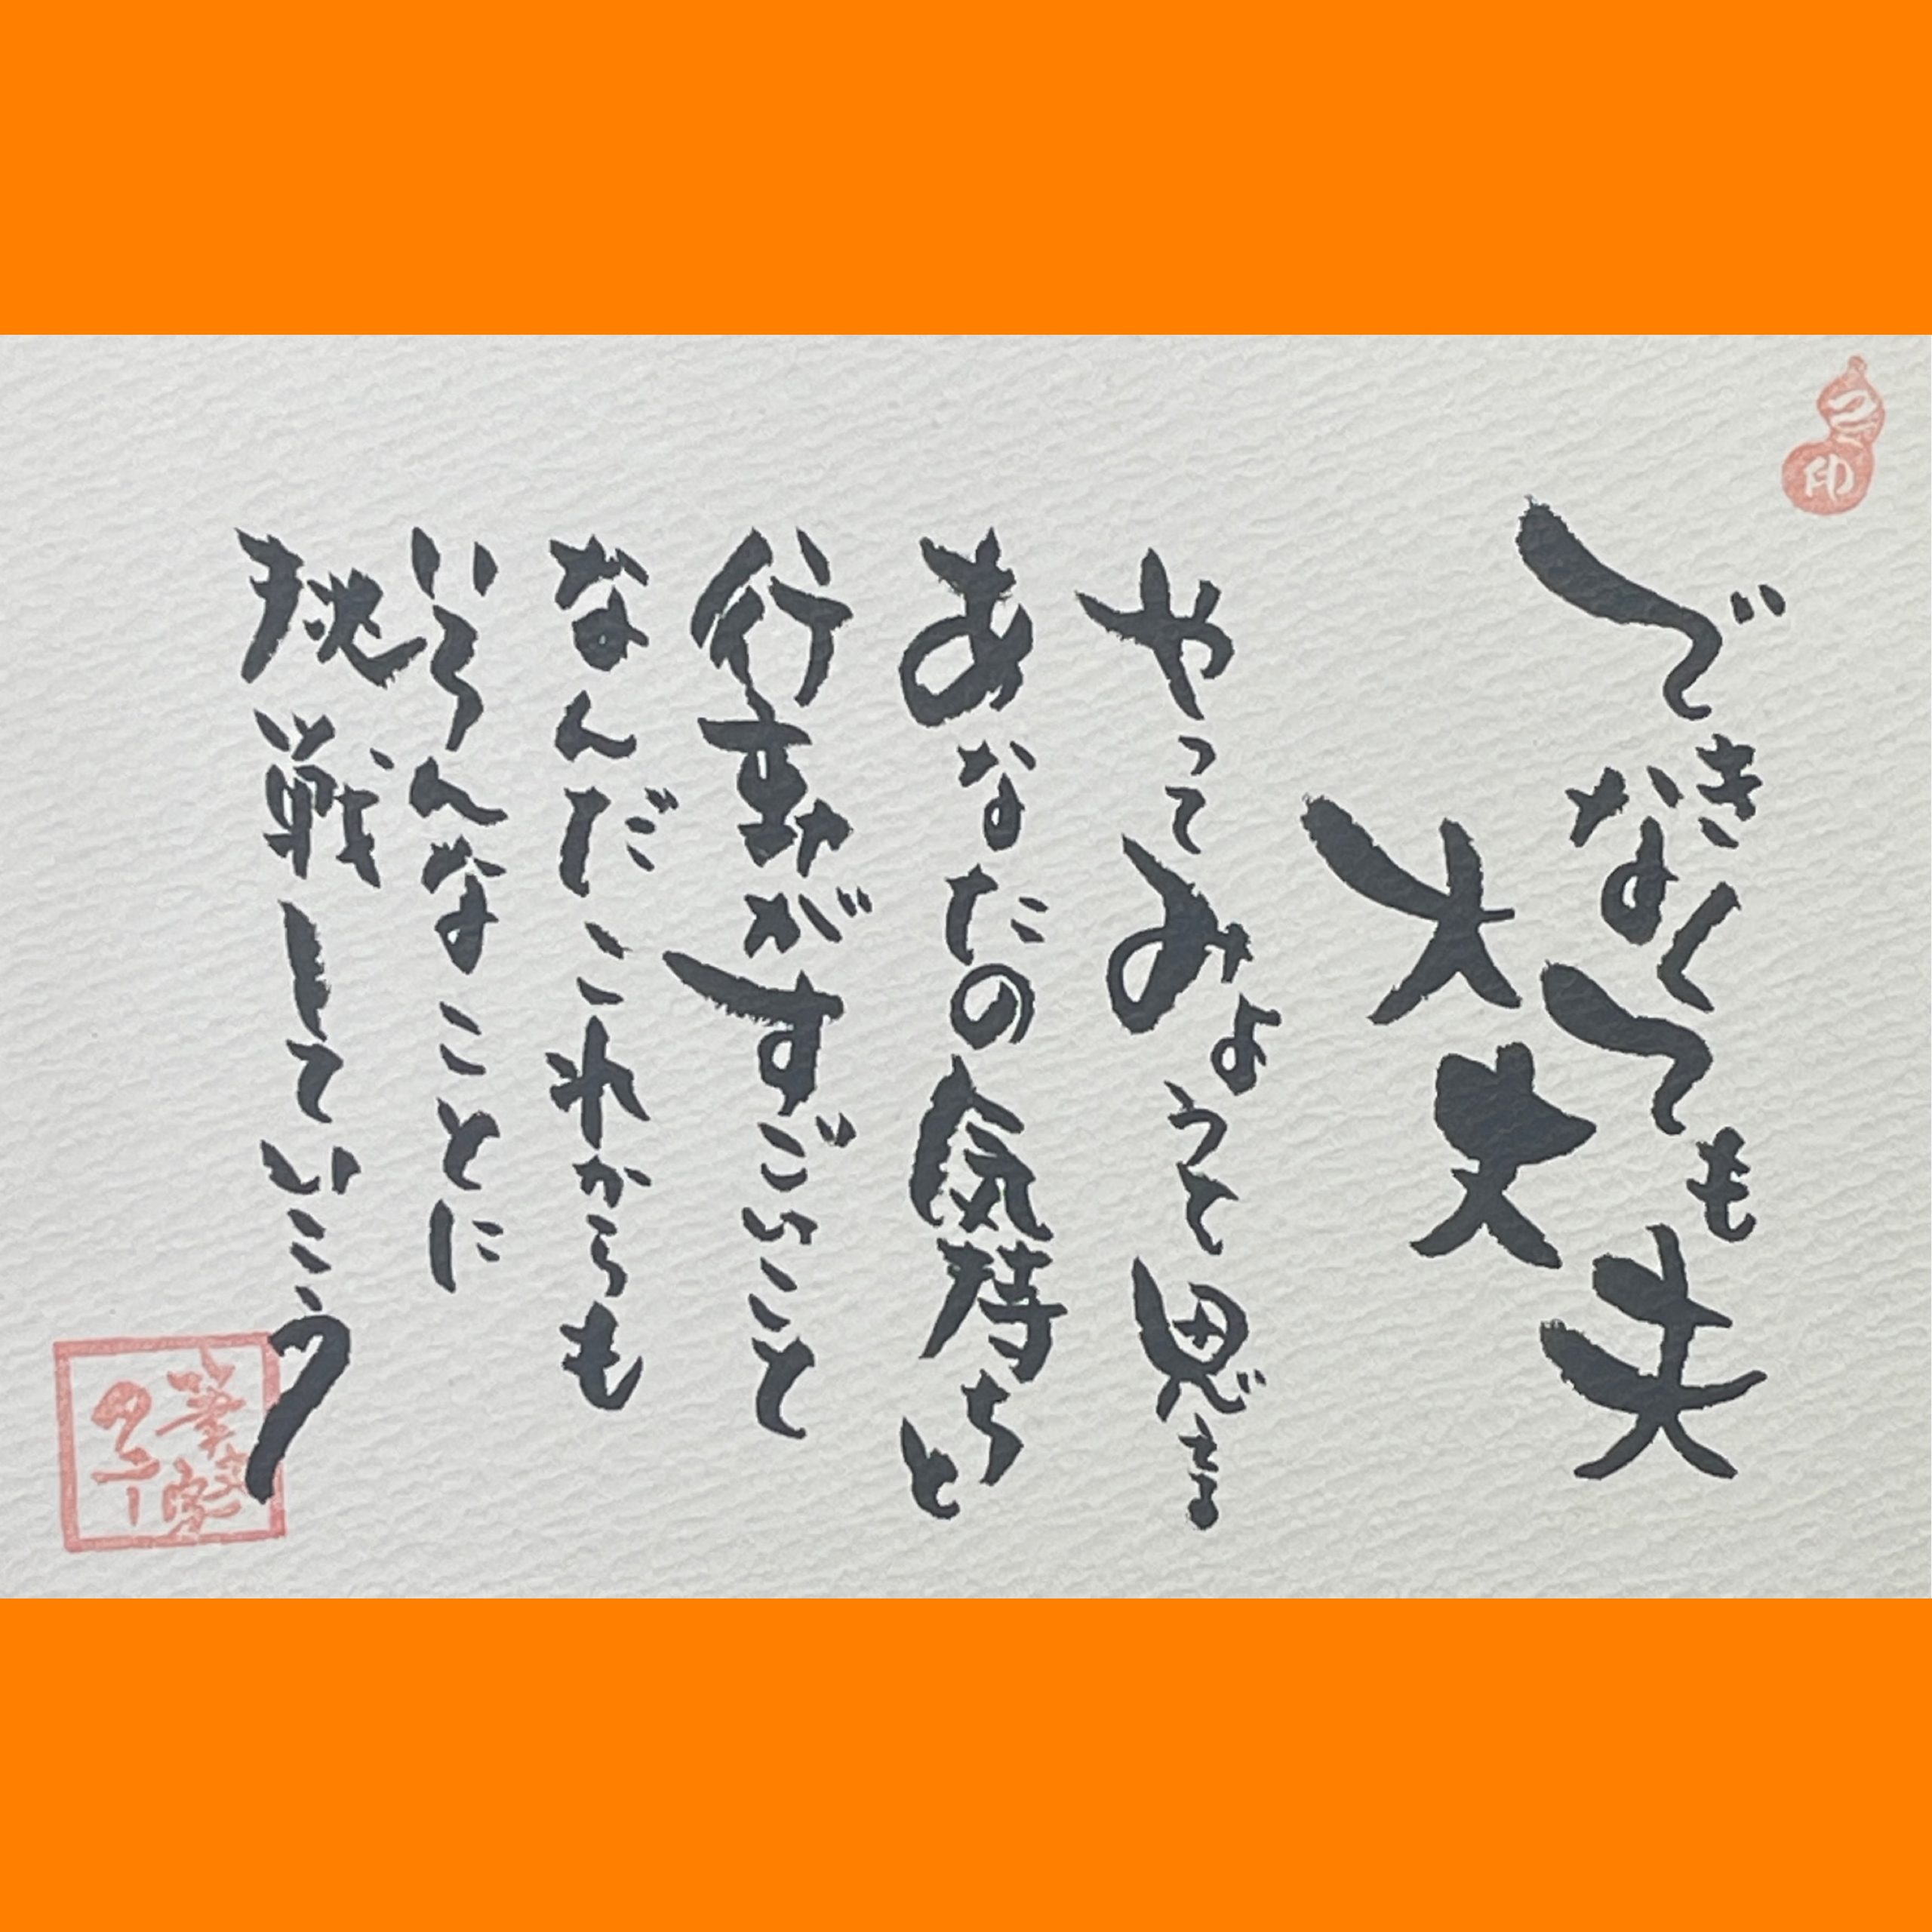 できなくても
大丈夫
やってみようと思える
あなたの気持ちと
行動がすごいこと
なんだこれからも
いろんなことに
挑戦していこう
印